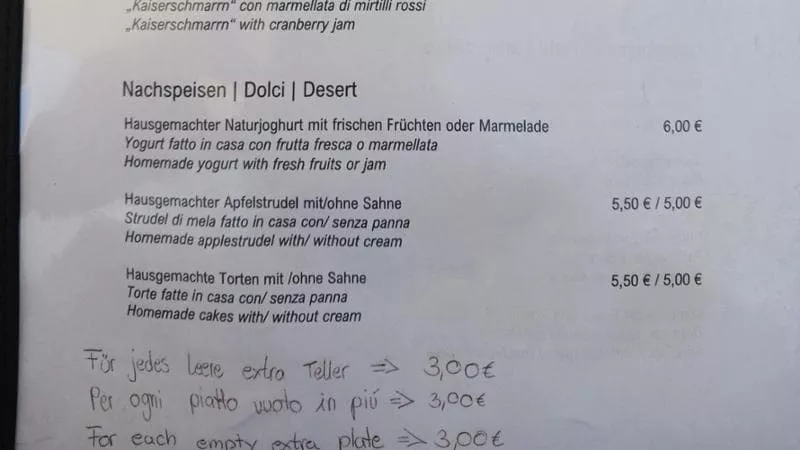 „Kaiserschmarrn“ con marmellata di mirtilli rossi
„Kaiserschmarrn“ with cranberry jam
Nachspeisen | Dolci | Desert
Hausgemachter Naturjoghurt mit frischen Früchten oder Marmelade 6,00 €
Yogurt fatto in casa con frutta fresca o marmellata
Homemade yogurt with fresh fruits or jam
Hausgemachter Apfelstrudel mit/ohne Sahne 5,50 € / 5,00 €
Strudel di mela fatto in casa con/ senza panna
Homemade applestrudel with/ without cream
Hausgemachte Torten mit /ohne Sahne 5,50 € / 5,00 €
Torte fatte in casa con/ senza panna
Homemade cakes with/ without cream
Für jedes leere extra Teller => 3,00€
Per ogni piatto vuoto in piú => 3,00€
For each empty extra plate => 3,00€